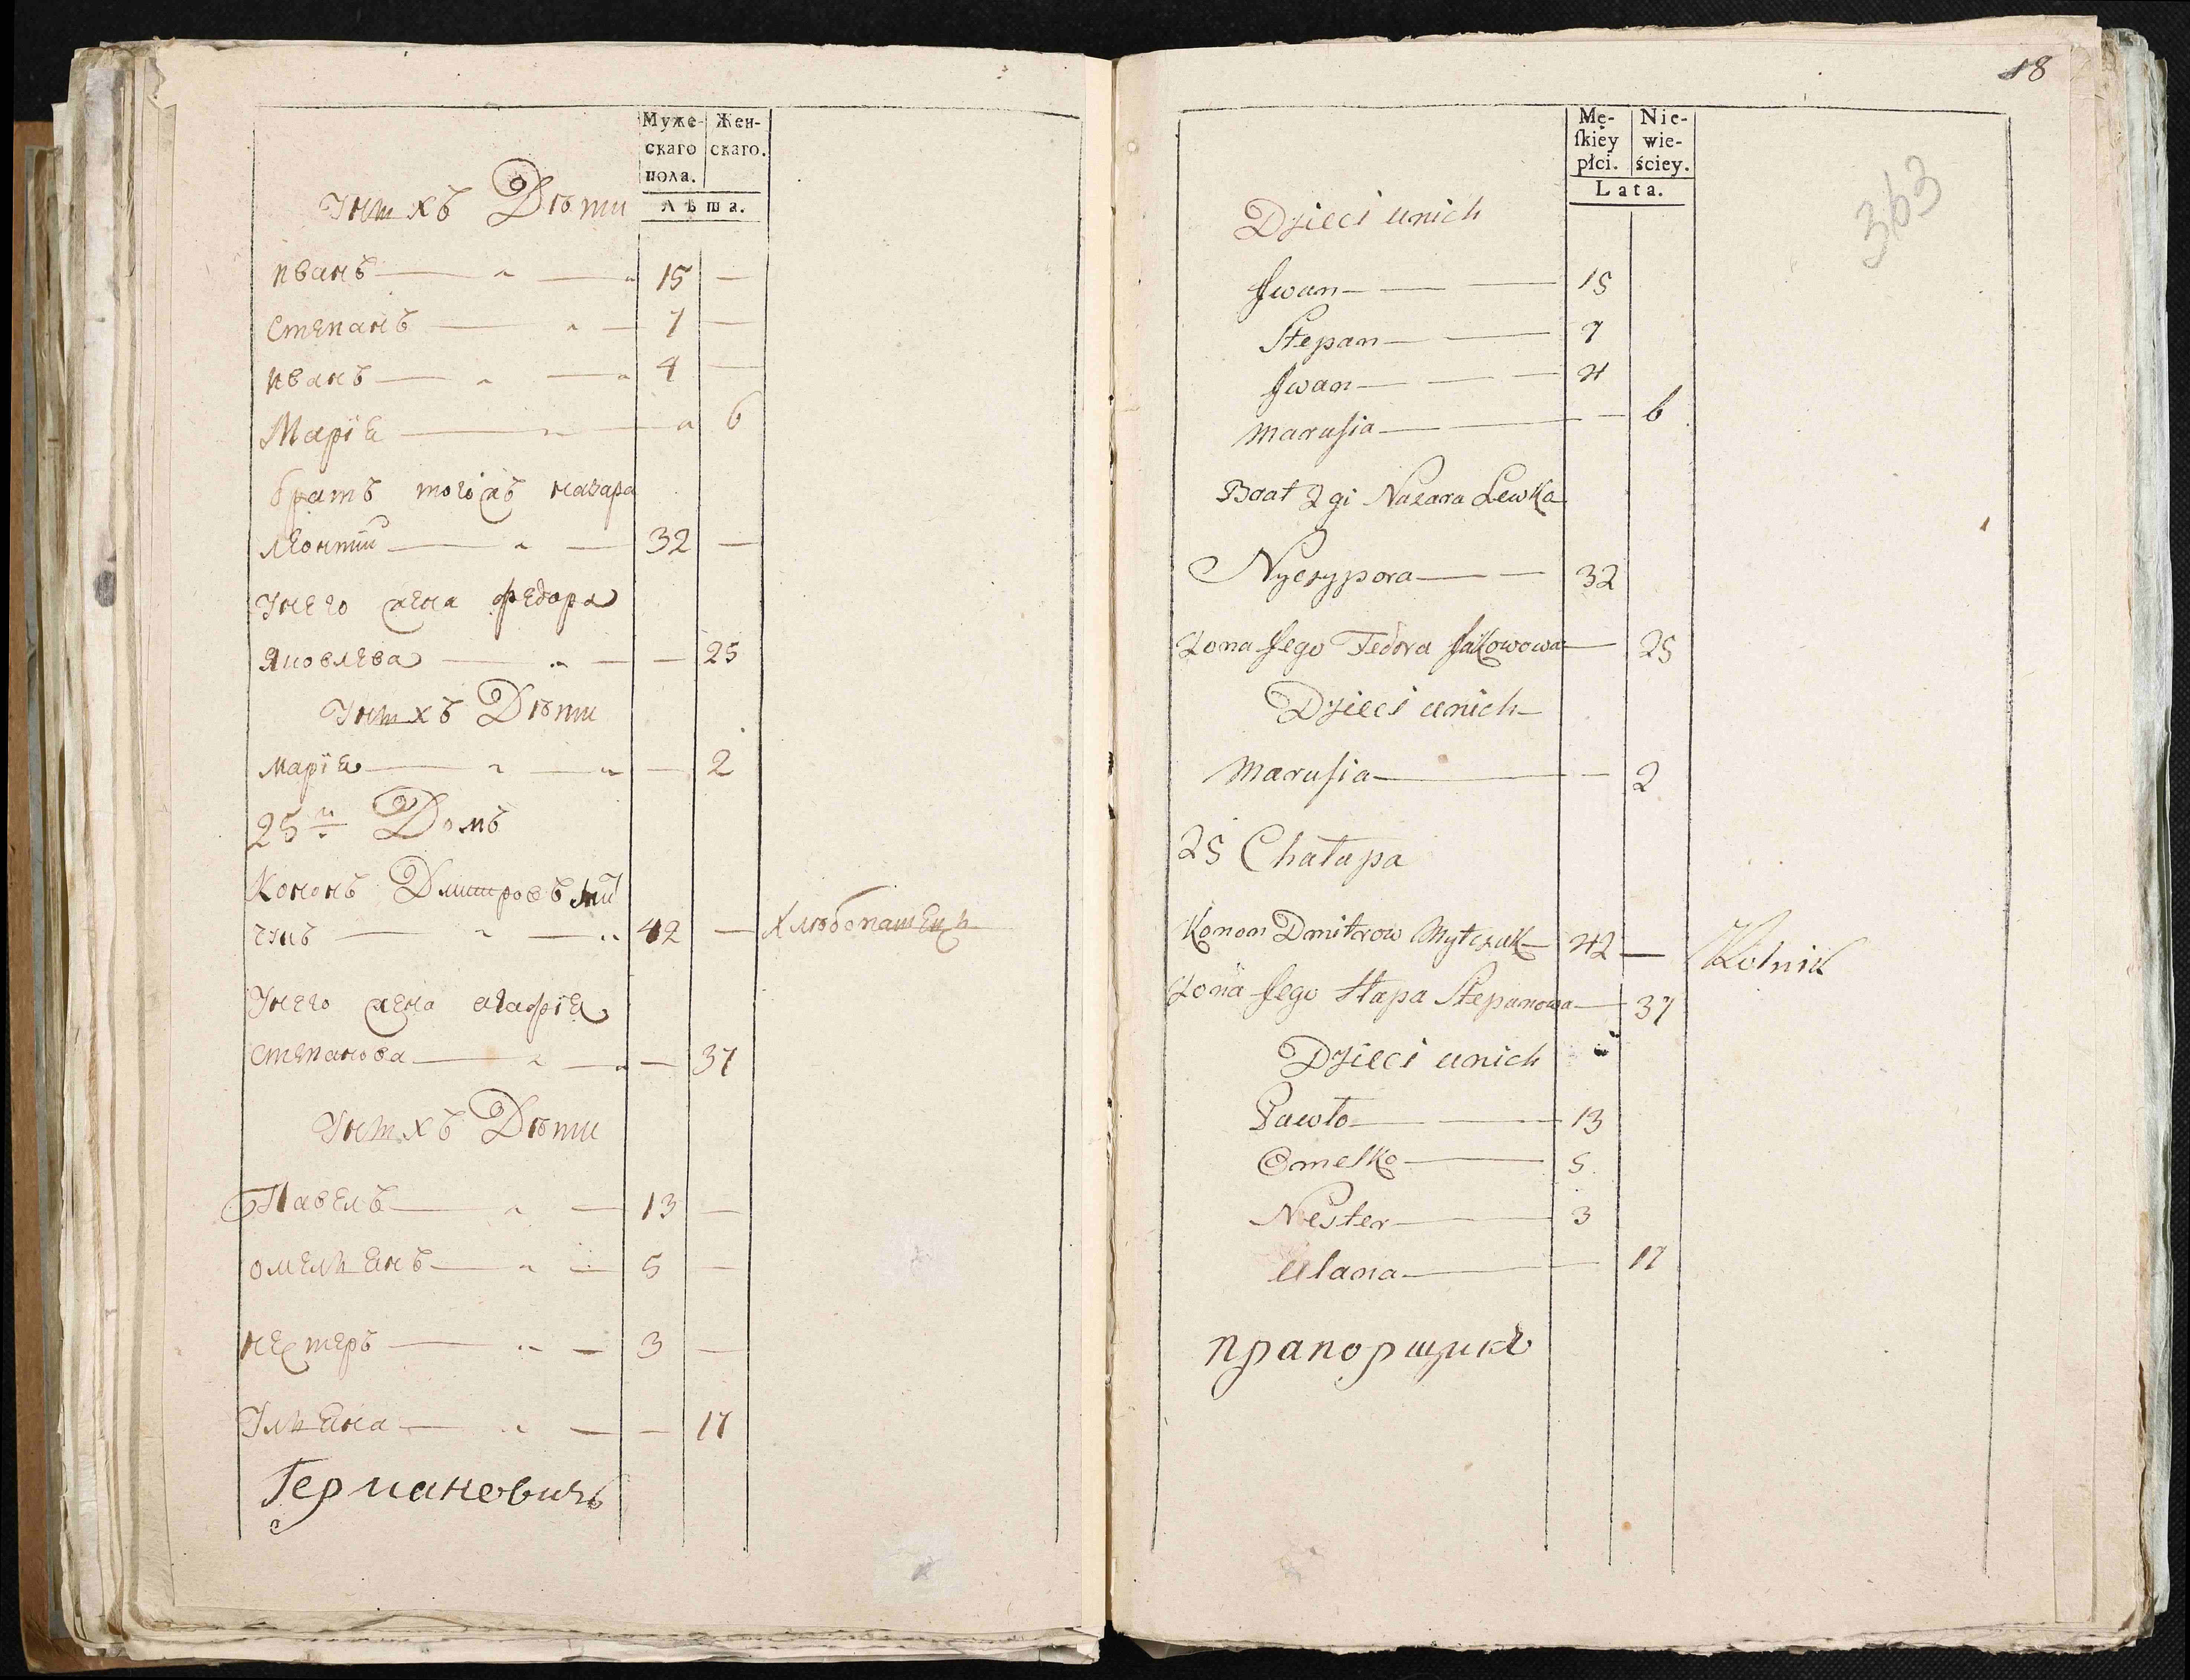 Муже- Жен-
скаго скаго.
пола.
Лѣта.
Унихъ Дѣти
иванъ 15 —
Степанъ 7 —
иванъ 4 —
Марія 6
братъ тогожъ назара
леонтий 32 —
Унего жена федора
яковлева — 25
Унихъ Дѣти
Марія — 2
25й Домъ
Кононъ Дмитровъ Мит
чукъ 42 — Хлѣбопашецъ
Унего жена агафія
степанова — 37
Унихъ Дѣти
Павелъ 13 —
омельянъ 5 —
нестеръ 3 —
Ульяна — 17
Германовичъ
18
363
Mę- Nie-
ſkiey wie-
płci. ściey.
Lata.
Dzieci unich
Jwan 15
Stepan 7
Jwan 4
Maruſia — 6
Brat 2gi Nazara Lewka
Nyczypora 32
Żona Jego Fedora Jakowowa 25
Dzieci unich
Maruſia — 2
25 Chałupa
Konon Dmitrow Mytczuk 42 — Rolnik
Żona Jego Hapa Stepanowa 37
Dzieci unich
Pawło 13
Omelko 5
Nester 3
Ulana — 17
прапорщикъ